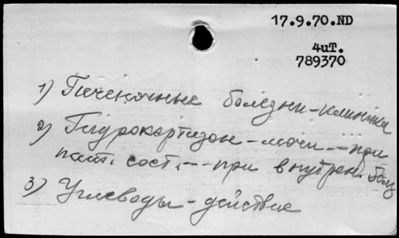 17.9.70.ND
4uT.
789370
1) Печеночные болезни-клиника
2) Гидрокортизон-мочи--при
пат. сост.--при внутрен. болез
3) Углеводы-действие